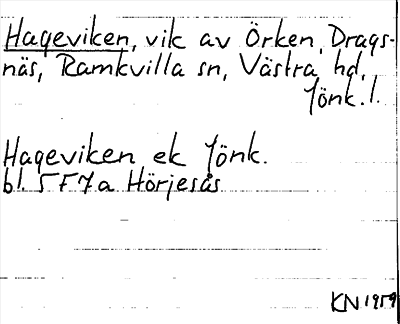 Hageviken, vik av Örken, Drags-
näs, Ramkvilla sn, Västra hd,
Jönk. l.
Hageviken ek Jönk.
bl. 5F7a Hörjesås
KN 1959